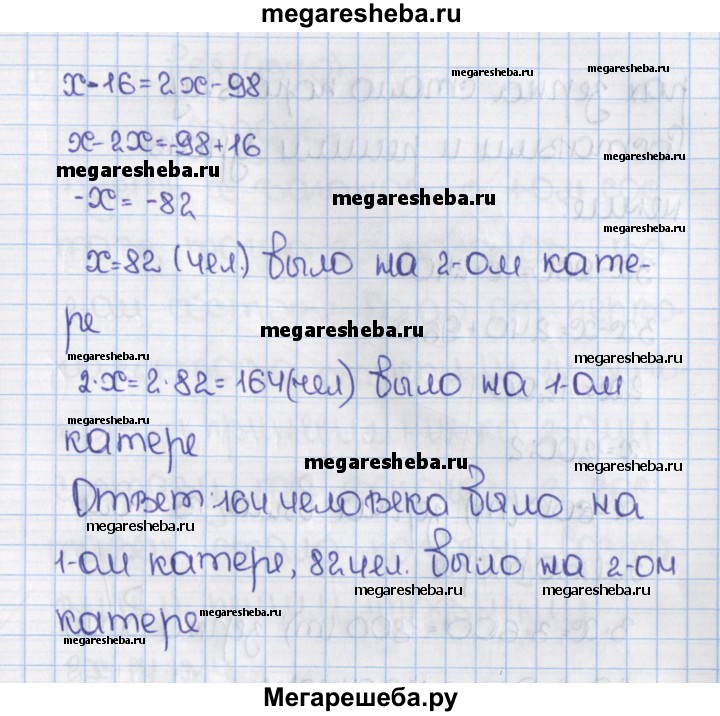 megaresheba.ru
х-16=2х-98
megaresheba.ru
megaresheba.ru
х-2х=-98+16
megaresheba.ru
megaresheba.ru
megaresheba.ru
-х= -82
х=82 (чел.) было на 2-ом кате-
ре
megaresheba.ru
megaresheba.ru
megaresheba.ru
2·х=2·82=164(чел) было на 1-ом
megaresheba.ru
катере
megaresheba.ru
megaresheba.ru
Ответ:164 человека было на
megaresheba.ru
megaresheba.ru
1-ом катере, 82чел. было на 2-ом
megaresheba.ru
катере
megaresheba.ru
megaresheba.ru
megaresheba.ru
Мегарешеба.ру